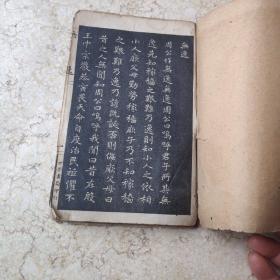 無逸
周公作無逸無逸周公曰嗚呼君子所其無
逸先知稼穡之艱難乃逸則知小人之依相
小人厥父母勤勞稼穡厥子乃不知稼穡
之艱難乃逸乃諺既誕否則侮厥父母曰
昔之人無聞知周公曰嗚呼我聞曰昔在殷
王中宗嚴恭寅畏天命自度治民祗懼不